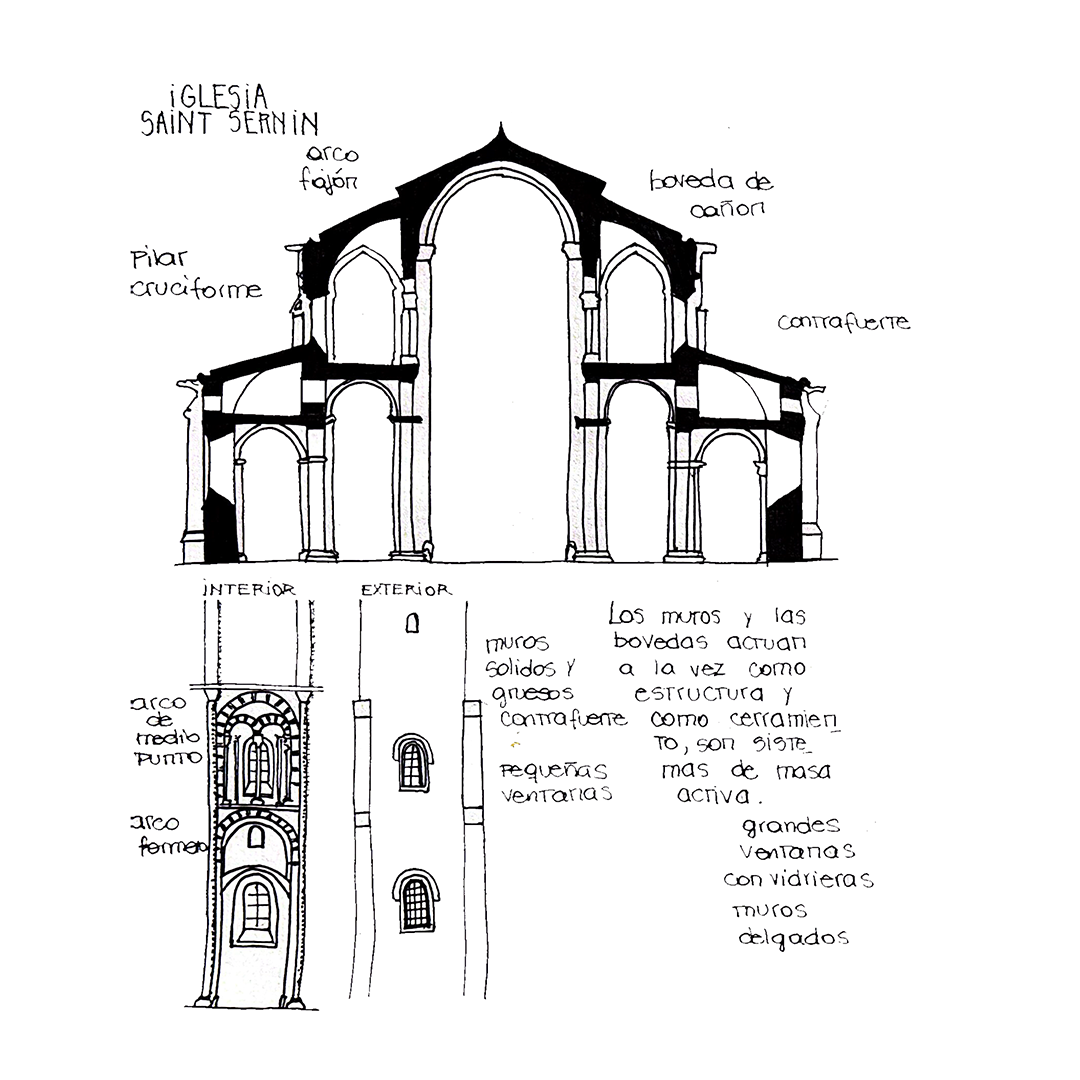 iGLESiA
SAiNT SERNiN
arco
fajón
boveda de
cañon
Pilar
cruciforme
contrafuerte
iNTERiOR
EXTERiOR
arco
de
medio
punto
arco
formero
muros
solidos y
gruesos
contrafuerte
pequeñas
ventanas
Los muros y las
bovedas actuan
a la vez como
estructura y
como cerramien_
to, son siste_
mas de masa
activa.
grandes
ventanas
con vidrieras
muros
delgados